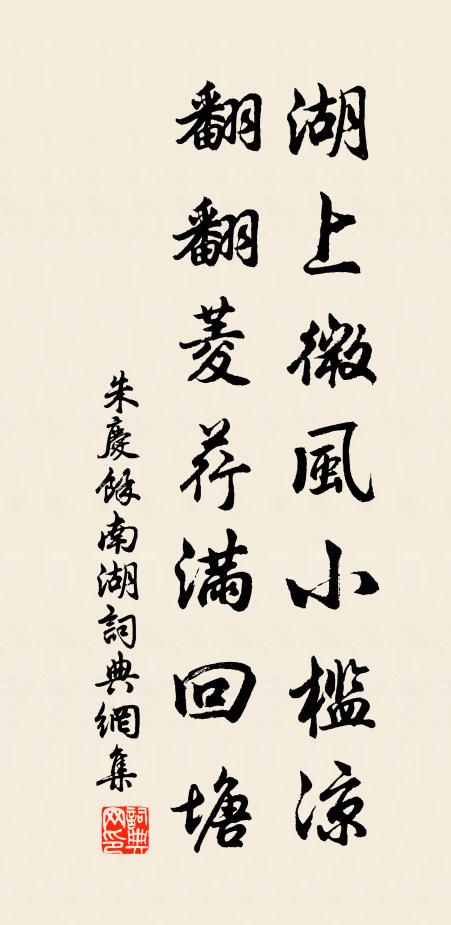 湖上微風小檻涼
翻翻菱荇滿回塘
朱慶餘南湖詞典網集
詞典网印